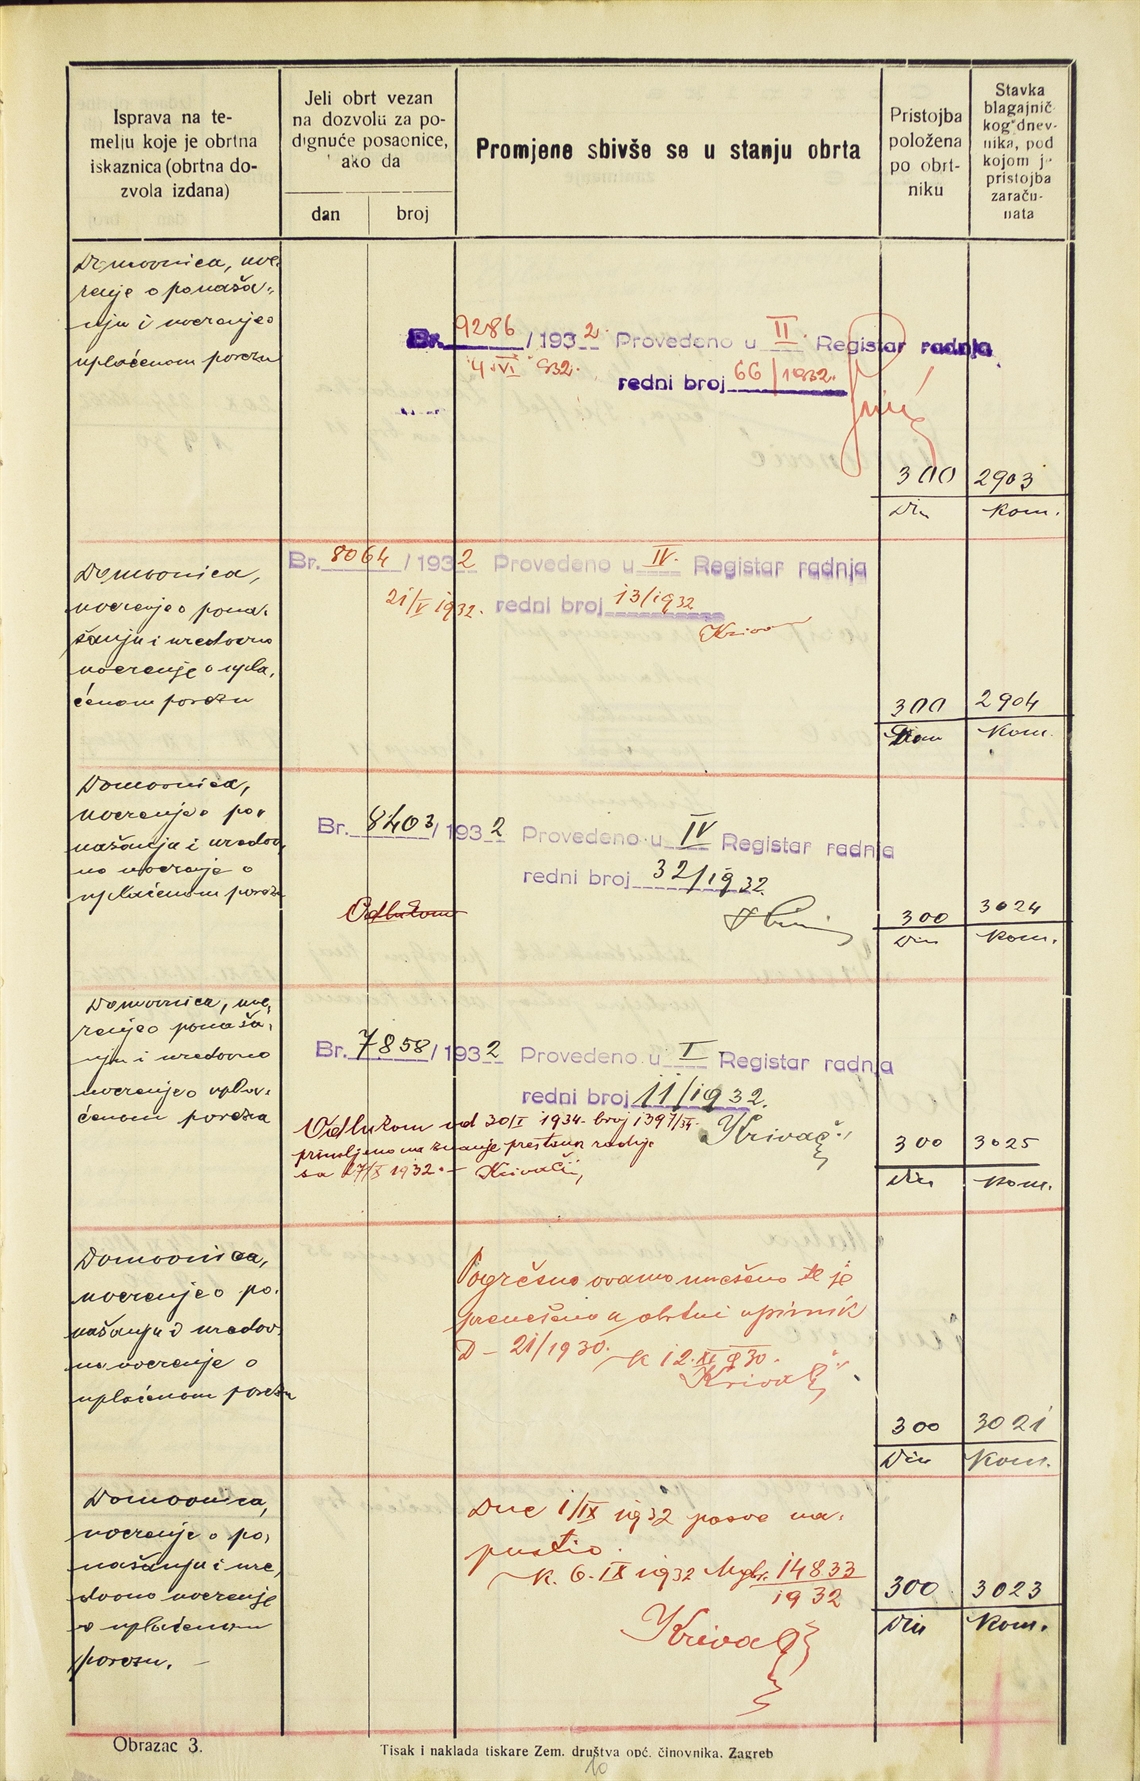 Isprava na te-
melju koje je obrtna
iskaznica (obrtna do-
zvola izdana)
Jeli obrt vezan
na dozvolu za po-
dignuće posaonice,
ako da
dan
broj
Promjene sbivše se u stanju obrta
Pristojba
položena
po obrt-
niku
Stavka
blagajnič-
kog dnev-
nika, pod
kojom je
pristojba
zaraču-
nata
Domovnica, uve-
renje o ponaša-
nju i uverenje o
uplaćenom porezu
Br. 9286 / 1932 Provedeno u II Registar radnja
4. VI 932. redni broj 66/1932.
300 2903
Din Kom.
Domovnica,
uverenje o pona-
šanju i uredovno
uverenje o upla-
ćenom porezu
Br. 8064 / 1932 Provedeno u IV. Registar radnja
21/V 1932. redni broj 13/1932
300 2904
Din Kom.
Domovnica,
uverenje o po-
našanju i uredov-
no uverenje o
uplaćenom porezu
Br. 8403 / 1932 Provedeno u IV Registar radnja
redni broj 32/1932.
Odlukom
300 3024
Din Kom.
Domovnica, uve-
renje o ponaša-
nju i uredovno
uverenje o upla-
ćenom poreza
Br. 7858 / 1932 Provedeno u I Registar radnja
redni broj 11/1932.
Odlukom od 30/I 1934. broj 1397/34.
primljeno na znanje prestanak radnje
sa 17/X 1932. – Krivačić
Krivačić
300 3025
Din Kom.
Domovnica,
uverenje o po-
našanju i uredov-
no uverenje o
uplaćenom porezu
Pogrešno ovamo unešeno te je
prenešeno u obrtni upisnik
D – 21/1930.
K 12. XI 930.
Krivačić
300 3021
Din Kom.
Domovnica,
uverenje o po-
našanju i ure-
dovno uverenje
o uplaćenom
porezu. –
Dne 1/IX 1932 posve na-
pustio.
K. 6. IX 1932 14833
1932
Krivačić
300 3023
Din Kom.
Obrazac 3.
Tisak i naklada tiskare Zem. društva opć. činovnika. Zagreb
10